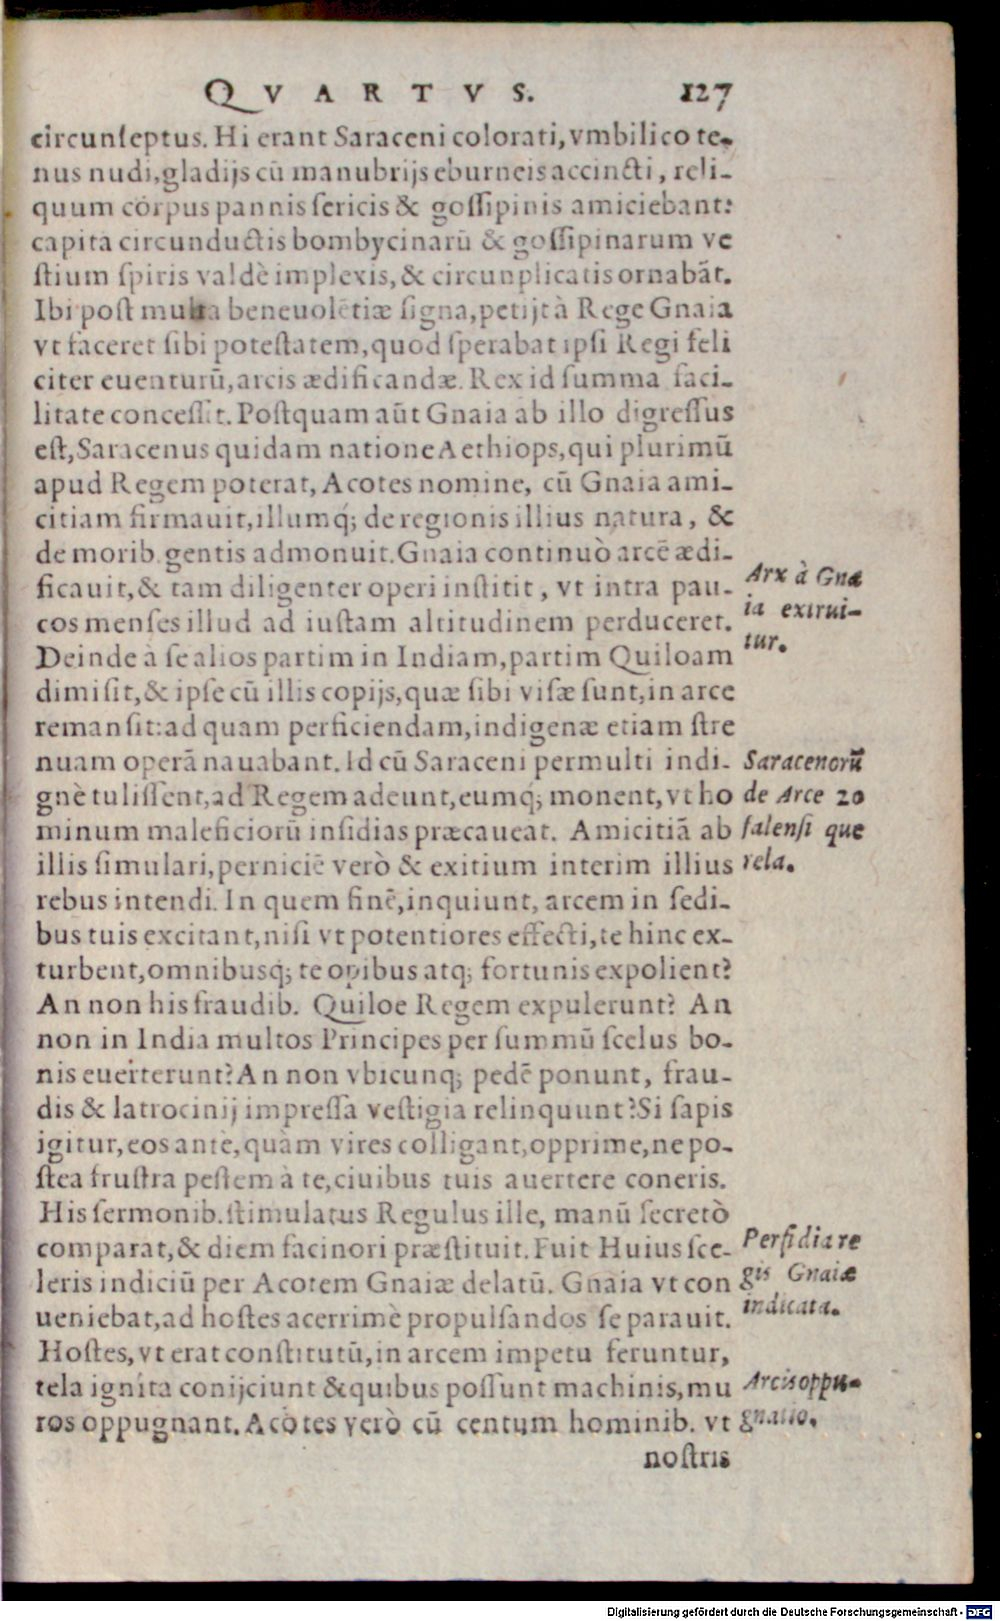 QVARTVS. 127
circunſeptus. Hi erant Saraceni colorati, vmbilico te-
nus nudi, gladijs cū manubrijs eburneis accincti, reli-
quum corpus pannis ſericis & goſſipinis amiciebant:
capita circunductis bombycinarū & goſſipinarum ve
ſtium ſpiris valdè implexis, & circunplicatis ornabāt.
Ibi poſt multa beneuolētiæ ſigna, petijt à Rege Gnaia
vt faceret ſibi poteſtatem, quod ſperabat ipſi Regi feli
citer euenturū, arcis ædificandæ. Rex id ſumma faci-
litate conceſſit. Poſtquam aūt Gnaia ab illo digreſſus
eſt, Saracenus quidam natione Aethiops, qui plurimū
apud Regem poterat, Acotes nomine, cū Gnaia ami-
citiam firmauit, illumq́; de regionis illius natura, &
de morib. gentis admonuit. Gnaia continuò arcē ædi-
ficauit, & tam diligenter operi inſtitit, vt intra pau-
cos menſes illud ad iuſtam altitudinem perduceret.
Deinde à ſe alios partim in Indiam, partim Quiloam
dimiſit, & ipſe cū illis copijs, quæ ſibi viſæ ſunt, in arce
remanſit: ad quam perficiendam, indigenæ etiam ſtre
nuam operā nauabant. Id cū Saraceni permulti indi-
gnè tuliſſent, ad Regem adeunt, eumq́; monent, vt ho
minum maleficiorū inſidias præcaueat. Amicitiā ab
illis ſimulari, perniciē verò & exitium interim illius
rebus intendi. In quem finē, inquiunt, arcem in ſedi-
bus tuis excitant, niſi vt potentiores effecti, te hinc ex-
turbent, omnibusq́; te opibus atq; fortunis expolient?
An non his fraudib. Quiloe Regem expulerunt? An
non in India multos Principes per ſummū ſcelus bo-
nis euerterunt? An non vbicunq; pedē ponunt, frau-
dis & latrocinij impreſſa veſtigia relinquunt? Si ſapis
igitur, eos antè, quàm vires colligant, opprime, ne po-
ſtea fruſtra peſtem à te, ciuibus tuis auertere coneris.
His ſermonib. ſtimulatus Regulus ille, manū ſecretò
comparat, & diem facinori præſtituit. Fuit Huius ſce-
leris indiciū per Acotem Gnaiæ delatū. Gnaia vt con
ueniebat, ad hoſtes acerrimè propulſandos ſe parauit.
Hoſtes, vt erat conſtitutū, in arcem impetu feruntur,
tela ignita conijciunt & quibus poſſunt machinis, mu
ros oppugnant. Acotes verò cū centum hominib. vt
noſtris
Arx à Gna
ia extrui-
tur.
Saracenorū
de Arce zo
falenſi que
rela.
Perfidia re
gis Gnaiæ
indicata.
Arcis oppu-
gnatio.
Digitalisierung gefördert durch die Deutsche Forschungsgemeinschaft - DFG